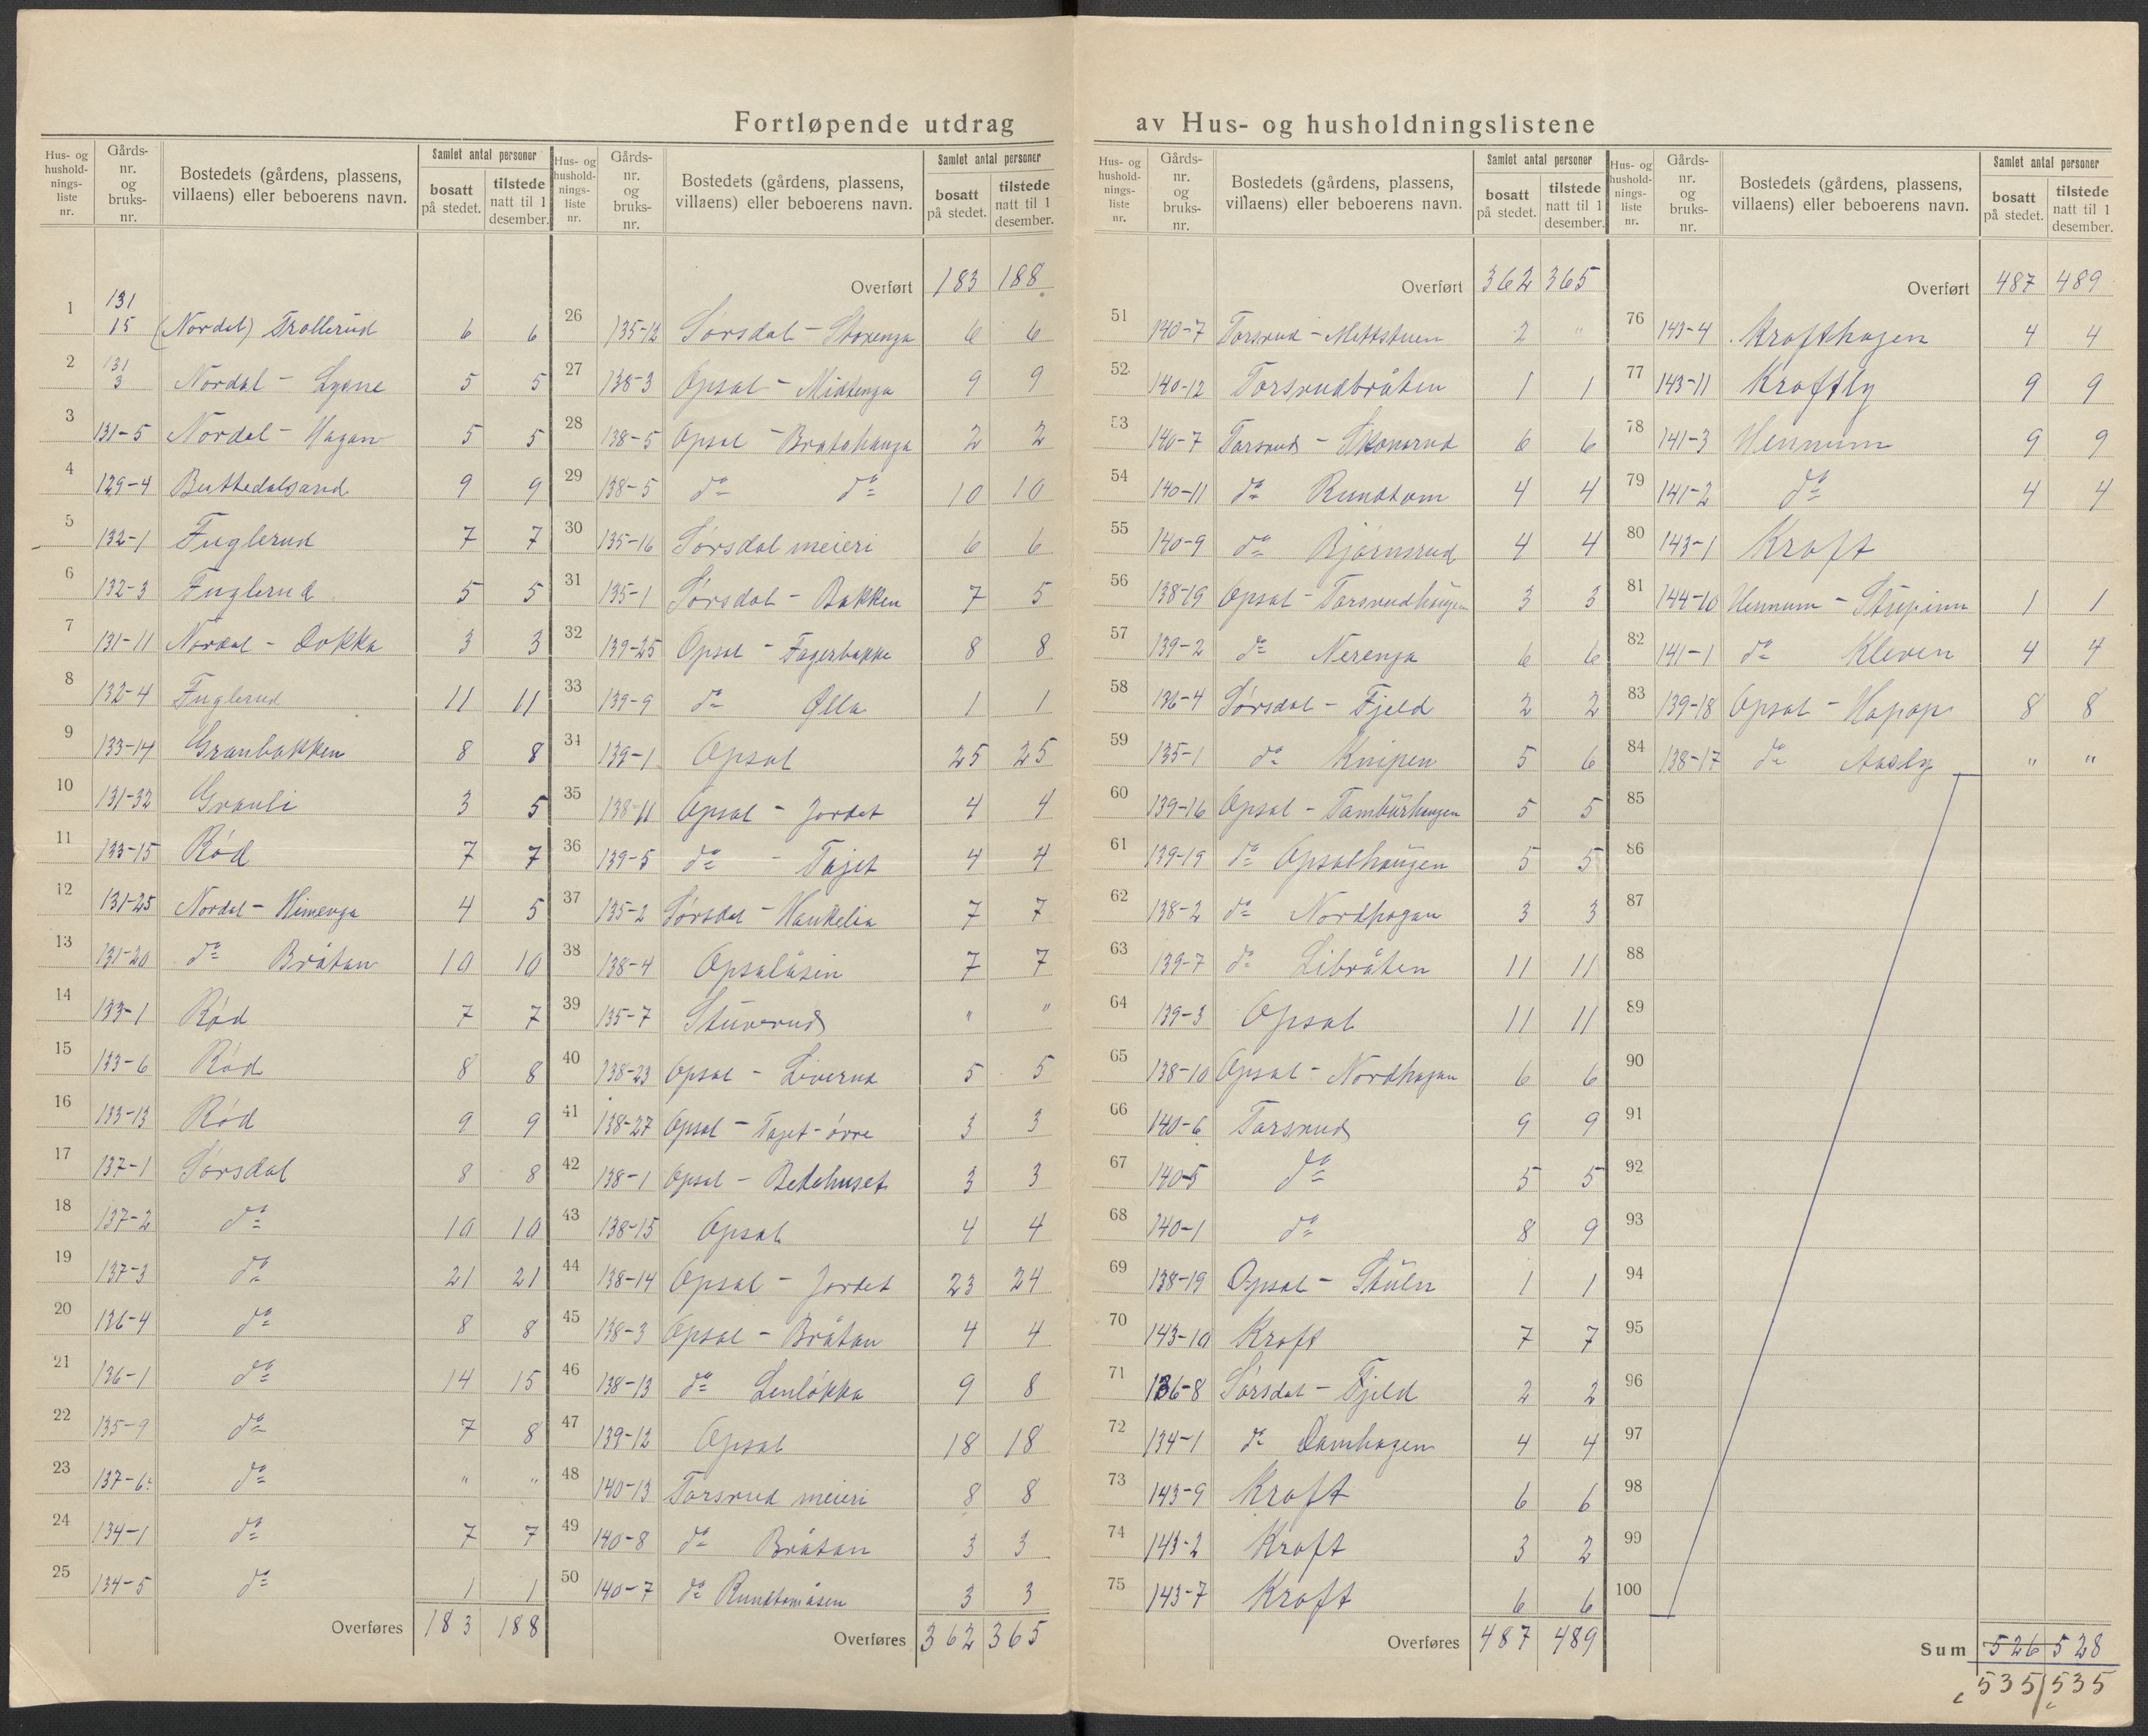 Fortløpende utdrag av Hus- og husholdningslistene
Hus- og hushold-nings-liste nr. | Gårds-nr. og bruks-nr. | Bostedets (gårdens, plassens, villaens) eller beboerens navn. | Samlet antal personer | bosatt på stedet. | tilstede natt til 1 desember.
1 131 15 (Nordal) Trollerud 6 6
2 131 3 Nordal - Lysne 5 5
3 131-5 Nordal - Hagan 5 5
4 129-4 Buttedalsrud 9 9
5 132-1 Fuglerud 7 7
6 132-3 Fuglerud 5 5
7 131-11 Nordal - Dokka 3 3
8 132-4 Fuglerud 11 11
9 133-14 Granbakken 8 8
10 131-32 Granli 3 5
11 133-15 Rød 7 7
12 131-25 Nordal - Himenga 4 5
13 131-20 do Bråtan 10 10
14 133-1 Rød 7 7
15 133-6 Rød 8 8
16 133-13 Rød 9 9
17 137-1 Sørsdal 8 8
18 137-2 do 10 10
19 137-3 do 21 21
20 136-4 do 8 8
21 136-1 do 14 15
22 135-9 do 7 8
23 137-6 do " "
24 134-1 do 7 7
25 134-5 do 1 1
Overføres 183 188
Hus- og hushold-nings-liste nr. | Gårds-nr. og bruks-nr. | Bostedets (gårdens, plassens, villaens) eller beboerens navn. | Samlet antal personer | bosatt på stedet. | tilstede natt til 1 desember.
Overført 183 188
26 135-12 Sørsdal - Storenga 6 6
27 138-3 Opsal - Midtenga 9 9
28 138-5 Opsal - Bratahauga 2 2
29 138-5 do do 10 10
30 135-16 Sørsdal meieri 6 6
31 135-1 Sørsdal - Bakken 7 5
32 139-25 Opsal - Fagerbakke 8 8
33 139-9 do Ølla 1 1
34 139-1 Opsal 25 25
35 138-11 Opsal - Jordet 4 4
36 139-5 do - Tajet 4 4
37 135-2 Sørsdal - Haukelia 7 7
38 138-4 Opsalåsen 7 7
39 135-7 Stuverud " "
40 138-23 Opsal - Liverud 5 5
41 138-27 Opsal - Tajet - øvre 3 3
42 138-1 Opsal - Bedehuset 3 3
43 138-15 Opsal 4 4
44 138-14 Opsal - Jordet 23 24
45 138-3 Opsal - Bråtan 4 4
46 138-13 do Lenløkka 9 8
47 139-12 Opsal 18 18
48 140-13 Torsrud meieri 8 8
49 140-8 do Bråtan 3 3
50 140-7 do Rundtomåsen 3 3
Overføres 362 365
Hus- og hushold-nings-liste nr. | Gårds-nr. og bruks-nr. | Bostedets (gårdens, plassens, villaens) eller beboerens navn. | Samlet antal personer | bosatt på stedet. | tilstede natt til 1 desember.
Overført 362 365
51 140-7 Torsrud - Mettstuen 2 "
52 140-12 Torsrudbråten 1 1
53 140-7 Torsrud - Skonsrud 6 6
54 140-11 do Rundtom 4 4
55 140-9 do Bjørnsrud 4 4
56 138-19 Opsal - Torsrudhaugen 3 3
57 139-2 do Nerenga 6 6
58 136-4 Sørsdal - Fjeld 2 2
59 135-1 do Knipen 5 6
60 139-16 Opsal - Tamburhaugen 5 5
61 139-19 do Opsalhaugen 5 5
62 138-2 do Nordhagan 3 3
63 139-7 do Libråten 11 11
64 139-3 Opsal 11 11
65 138-10 Opsal - Nordhagan 6 6
66 140-6 Torsrud 9 9
67 140-5 do 5 5
68 140-1 do 8 9
69 138-19 Opsal - Stuln 1 1
70 143-10 Kroft 7 7
71 136-8 Sørsdal - Fjeld 2 2
72 134-1 do Damhagen 4 4
73 143-9 Kroft 6 6
74 143-2 Kroft 3 2
75 143-7 Kroft 6 6
Overføres 487 489
Hus- og hushold-nings-liste nr. | Gårds-nr. og bruks-nr. | Bostedets (gårdens, plassens, villaens) eller beboerens navn. | Samlet antal personer | bosatt på stedet. | tilstede natt til 1 desember.
Overført 487 489
76 143-4 Krofthagen 4 4
77 143-11 Kroftly 9 9
78 141-3 Hennum 9 9
79 141-2 do 4 4
80 143-1 Kroft
81 144-10 Hennum - 1 1
82 141-1 do Kleven 4 4
83 139-18 Opsal - Hapop 8 8
84 138-17 do Aasly " "
85
86
87
88
89
90
91
92
93
94
95
96
97
98
99
100
Sum 526 528
535 535